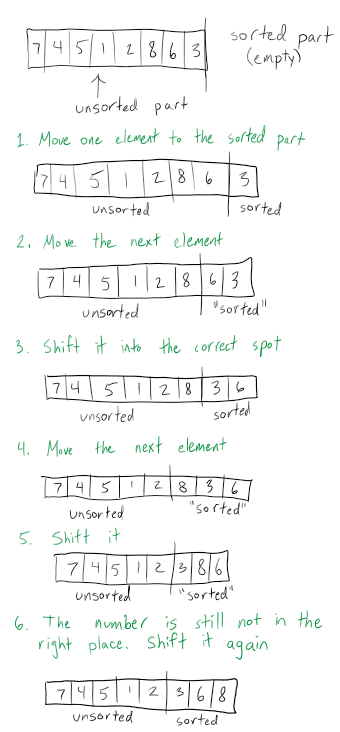 7 4 5 1 2 8 6 3
sorted part
(empty)
unsorted part
1. Move one element to the sorted part
7 4 5 1 2 8 6 3
unsorted sorted
2. Move the next element
7 4 5 1 2 8 6 3
unsorted "sorted"
3. Shift it into the correct spot
7 4 5 1 2 8 3 6
unsorted sorted
4. Move the next element
7 4 5 1 2 8 3 6
unsorted "sorted"
5. Shift it
7 4 5 1 2 3 8 6
unsorted "sorted"
6. The number is still not in the
right place. Shift it again
7 4 5 1 2 3 6 8
unsorted sorted